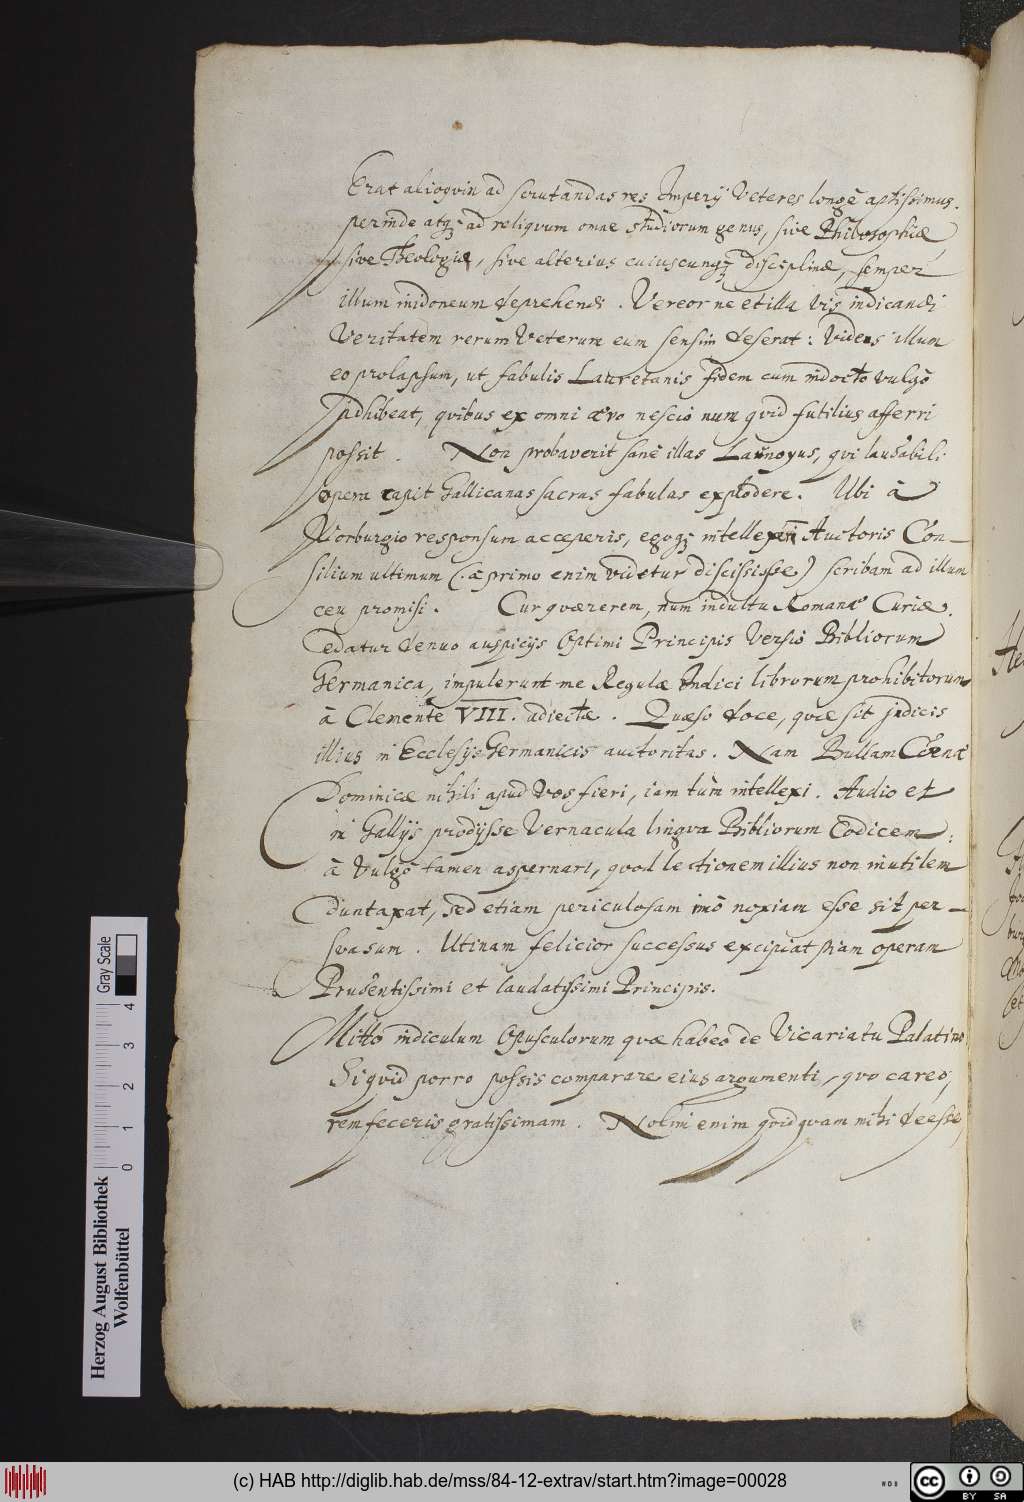 Erat alioqvin ad scrutandas res Imperij Veteres longè aptissimus,
perinde atq; ad reliqvum omne studiorum genus, sive Philosophiæ
sive Theologiæ, sive alterius cuiuscunq; disciplinæ, semper
illum inidoneum deprehendi. Vereor ne et illa vis indicandi
Veritatem rerum Veterum eum sensim deserat: Videns illum
eo prolapsum, ut fabulis Lauretanis fidem cum indocto vulgò
adhibeat, qvibus ex omni ævo nescio num qvid futilius afferri
possit. Non probaverit sanè illas Launoyus, qvi laudabili
opera cæpit Gallicanas sacras fabulas explodere. Ubi à
Vorburgio responsum acceperis, egoq; intellexeri Auctoris Con-
silium ultimum (à primo enim videtur discississe) scribam ad illum
ceu promisi. Cur qværerem, num indultu Romanæ Curiæ
edatur denuo auspicijs Optimi Principis Versio Bibliorum
Germanica, impulerunt me Regulæ Indici librorum prohibitorum
à Clemente VIII. adiectæ. Quæso doce, qvæ sit judicis
illius in Ecclesijs Germanicis auctoritas. Nam Bullam Cœnæ
Dominicæ nihili apud Vos fieri, iam tùm intellexi. Audio et
in Gallijs prodijsse Vernacula lingva Bibliorum Codicem:
à Vulgò tamen aspernari, qvod lectionem illius non inutilem
duntaxat, sed etiam periculosam imò noxiam esse sit per-
svasum. Utinam felicior successus excipiat piam operam
Prudentissimi et laudatissimi Principis.
Mitto indiculum Opusculorum qvæ habeo de Vicariatu Palatino
Si qvid porro possis comparare eius argumenti, qvo careo,
rem feceris gratissimam. Nolim enim qvidqvam mihi deesse
Herzog August Bibliothek
Wolfenbüttel
Gray Scale
0 1 2 3 4
(c) HAB http://diglib.hab.de/mss/84-12-extrav/start.htm?image=00028
WDB
cc BY SA